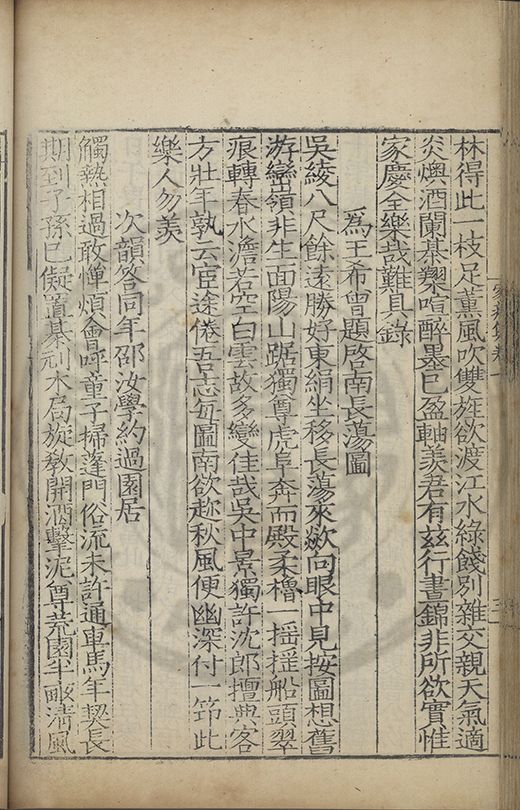 林得此一枝足薰風吹雙旌欲渡江水綠餞別雜交親天氣適
炎燠酒闌棊槊喧醉墨已盈軸羨君有兹行晝錦非所欲實惟
家慶全樂哉難具錄
爲王希曾題啓南長蕩圖
吳綾八尺餘遠勝好東絹坐移長蕩來歘向眼中見按圖想舊
游巒嶺非生面陽山踞獨尊虎阜奔而殿柔櫓一摇摇船頭翠
痕轉春水澹若空白雲故多變佳哉吳中景獨許沈郎擅與客
方壯年孰云宦途倦吾志勿圖南欲趁秋風便幽深付一笻此
樂人勿羨
次韻答同年邵汝學約過園居
觸熱相過敢憚煩會呼童子掃蓬門俗流未許通車馬年契長
期到子孫已儗置棊刓木局旋教開酒擊泥尊荒園半畝清風